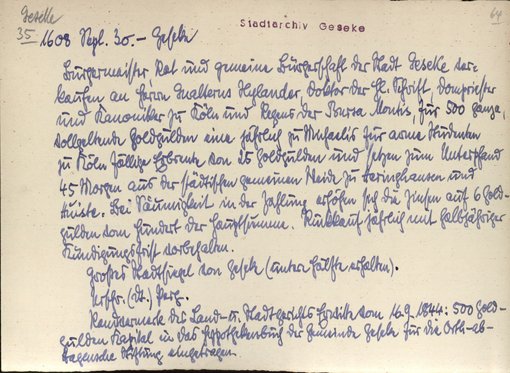 Geseke
35
64
Stadtarchiv Geseke
1608 Sept. 30.- Geseke
Bürgermeister, Rat und gemeine Bürgerschaft der Stadt Geseke ver-
kaufen an Herrn Gualterus Xylander, Doktor der Hl. Schrift, Dompriester
und Kanoniker zu Köln und Regens der Bursa Montis, für 500 ganze,
vollgeltende Goldgulden eine jährlich zu Michaelis für arme Studenten
zu Köln fällige Erbrente von 25 Goldgulden und setzen zum Unterpfand
45 Morgen aus der städtischen gemeinen Weide zu Heringhausen und
Stüste. Bei Säumigkeit in der Zahlung erhöhen sich die Zinsen auf 6 Gold-
gulden vom Hundert der Hauptsumme. Rückkauf jährlich mit halbjähriger
Kündigungsfrist vorbehalten.
Großes Stadtsiegel von Geseke (untere Hälfte erhalten).
(dt.) Perg.
Randvermerk des Land- u. Stadtgerichts Erwitte vom 16.9.1844: 500 Gold-
gulden Kapital in das Hypothekenbuch der Gemeinde Geseke für die
Stiftung eingetragen.